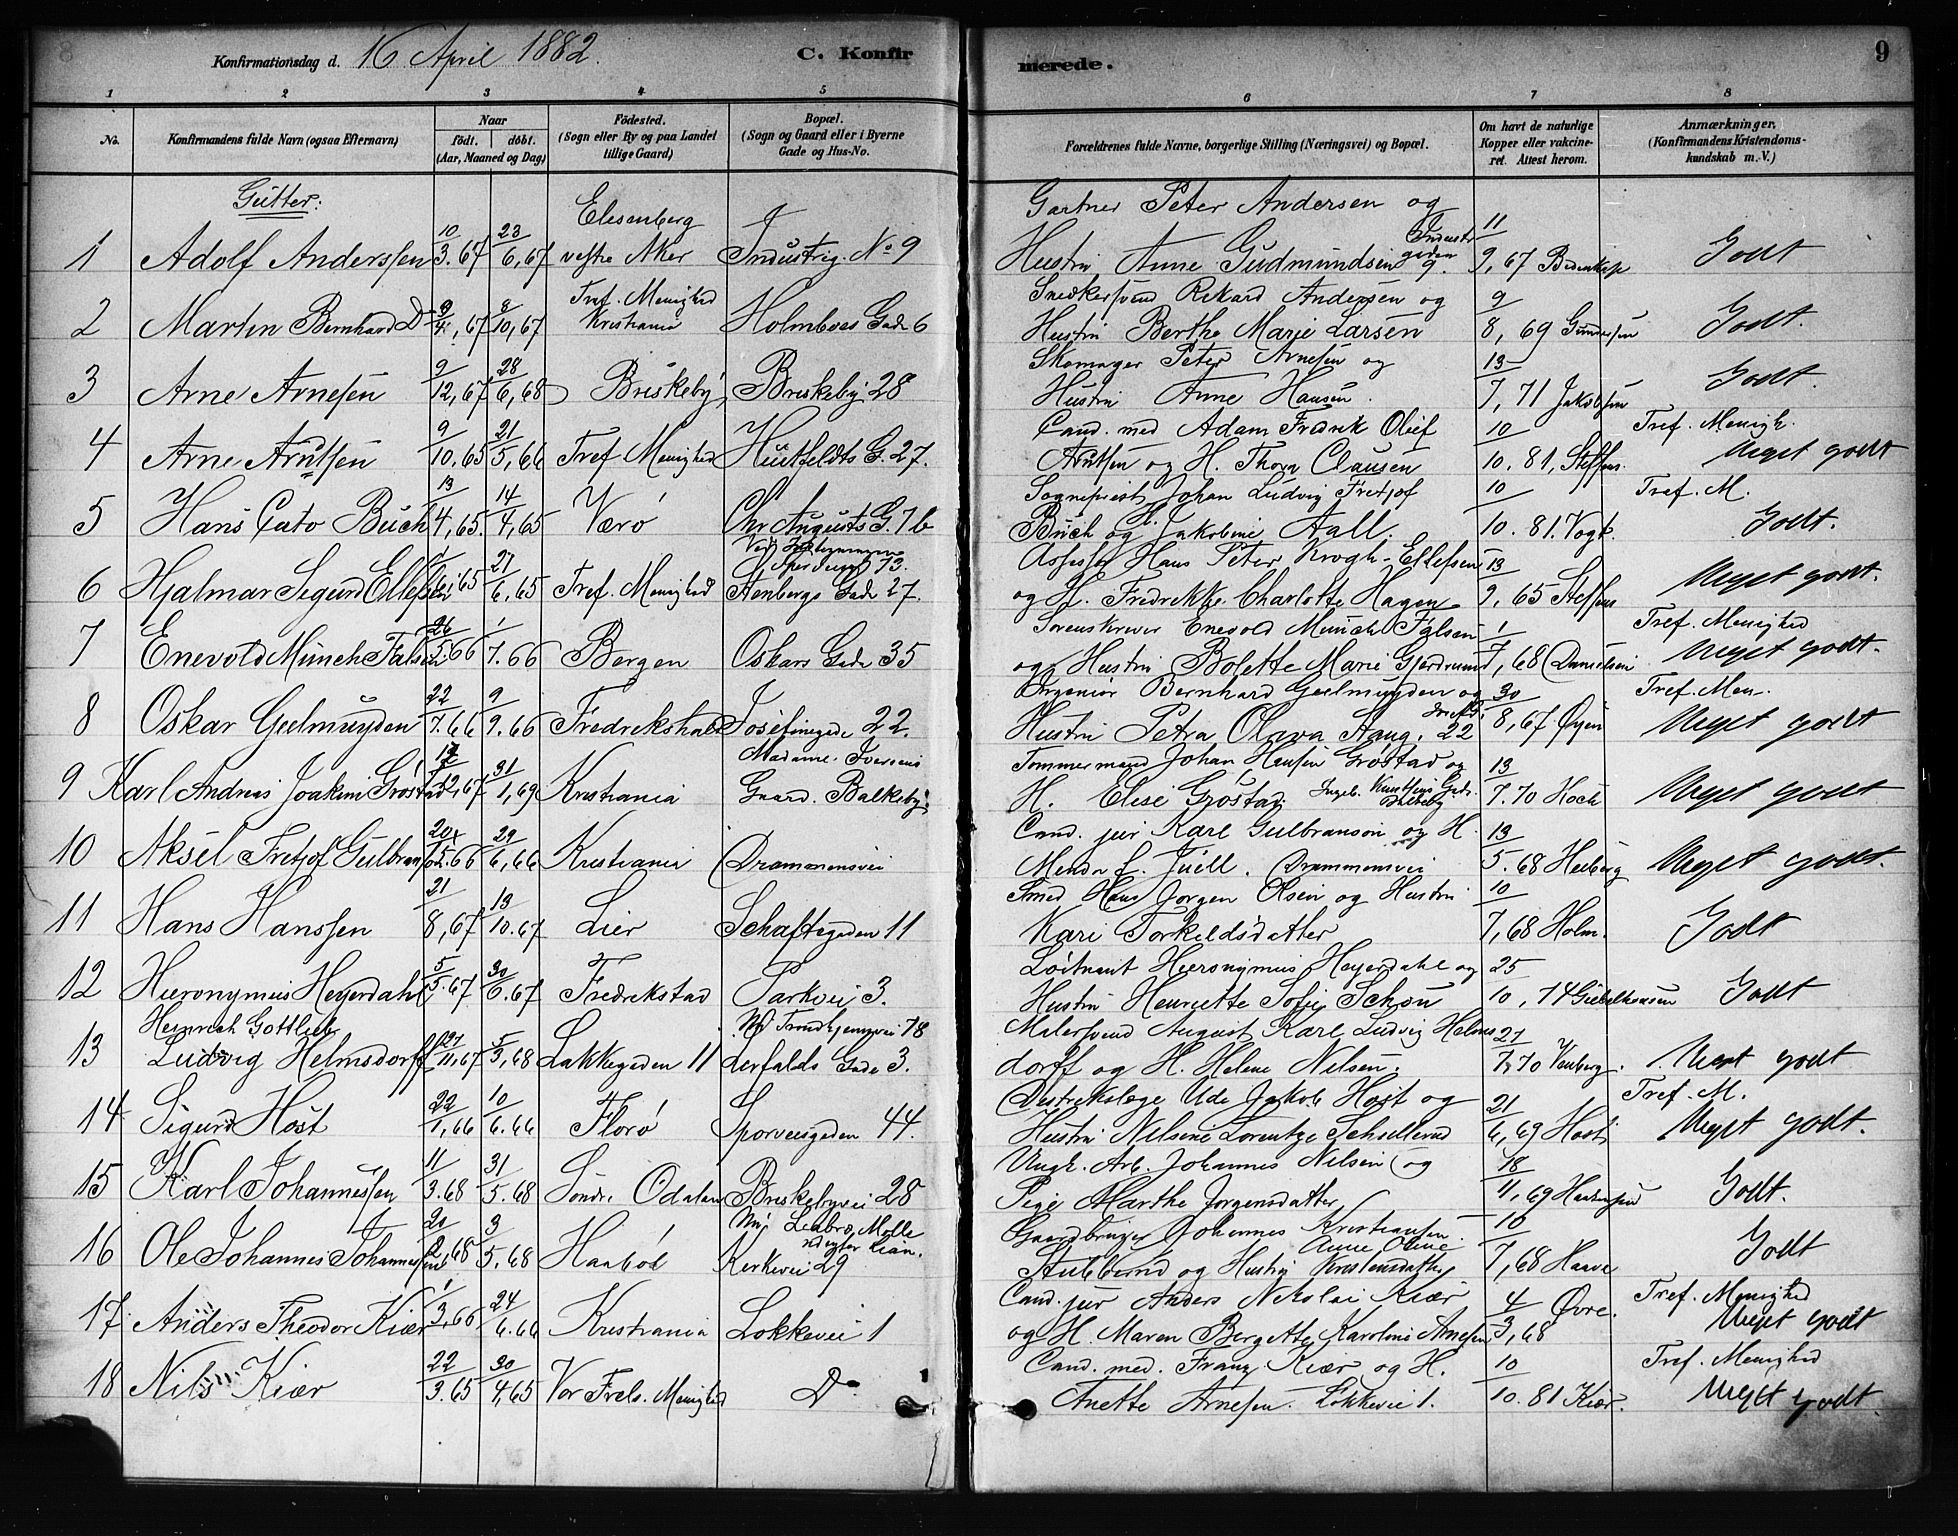 8
Konfirmationsdag d. 16 April 1882.
C. Konfir
merede.
9
1 2 3 4 5 6 7 8
No.
Konfirmandens fulde Navn (ogsaa Efternavn)
Naar
født. døbt.
(Aar, Maaned og Dag)
Fødested.
(Sogn eller By og paa Landet
tillige Gaard)
Bopæl.
(Sogn og Gaard eller i Byerne
Gade og Hus-No.
Forældrenes fulde Navne, borgerlige Stilling (Næringsvei) og Bopæl.
Om havt de naturlige
Kopper eller vakcine-
ret. Attest herom.
Anmærkninger.
(Konfirmandens Kristendoms-
kundskab m. V.)
Gutter:
Elesenberg
Gartner Peter Andersen og
1 Adolf Anderssen 10/3.67 23/6,67 vestre Aker Industrig. No 9 Hustru Anne Gudmundsen 9. 11/9,67 Godt
Tref. Menighed
Snedkersvend Rikard Andersen og
2 Martin Bernhard Do 67 8/10,67 Kristiania Holmboes Gade 6 Hustru Berthe Marie Larsen 9/8,69 Gundersen Godt.
Skomager Peter Arnesen og
3 Arne Arnesen 9/12,67 28/6,68 Briskeby Briskeby 28 Hustru Anne Hansen. 13/7,71 Jakobsen Godt.
Cand. med Adam Fredrik Oluf
Tref. Menigh.
4 Arne Arntsen 9/10.65 21/5,66 Tref Menighed Huitfeldts G. 27. Arntsen og H. Thora Clausen 10/10.81, Steffens. Meget godt
Sogneprest Johan Ludvig Fretjof
Tref. M.
5 Hans Cato Buch 13/4,65. 14/4,65 Værø Chr Augusts G. 7b Buch og H. Jakobine Aall. 10/10.81. Vogt. Godt.
Assessor Hans Peter Krogh-Ellefsen
6 Hjalmar Sigurd Ellefsen 65 27/6,65 Tref. Menighed Stenbergs Gade 27. og H. Fredrikke Charlotte Hagen 13/9,65 Steffens Meget godt.
Sorenskriver Enevold Munch Falsen
Tref. Menighed
7 Enevold Munch Falsen 26/5.66 1/7.66 Bergen Oskars Gade 35 og Hustru Bolette Marie Gjerdrum 1/7,68 Danielsen Meget godt.
Ingeniør Bernhard Geelmuyden og
Tref. Men.
8 Oskar Geelmuyden 22/7.66 9/9.66 Fredrekshald Josefinegade 22. Hustru Petra Olava Stang. 22 30/8,67 Øyen Meget godt
Madame Iversens
Tømmermand Johan Hansen Grøstad og
9 Karl Andreas Joakim Grøstad 67 31/1,69 Kristiania Gaard. Balkeby H. Elise Grøstad. 13/7.70 Koch Meget godt
Cand. jur Karl Gulbranson og H.
10 Aksel Fretjof Gulbranson 66 29/6,66 Kristiania Drammensvei Juell. Drammensvei 13/5.68 Heiberg Meget godt.
Smed Hans Jørgen Olsen og Hustru
11 Hans Hanssen 21/8,67 13/10.67 Lier Schaftegaden 11 Kari Torkeldsdatter 10/7,68 Holm. Godt
Løitnant Hieronymus Heyerdahl og
12 Hieronymus Heyerdahl 5/5.67 30/6.67 Fredrekstad Parkvei 3. Hustru Henriette Sofie Schøn 25/10,74 Giebelhausen Godt
Heinrich Gottlieb
Trondhjemsvei 78
Malersvend August Karl Ludvig Helms
13 Ludvig Helmsdorff 27/11,67 5/3,68 Lakkegaden 11 Lerfalds Gade 3. dorff og H. Helene Nilsen. 27/7,70 Meget godt
Distrektslæge Ude Jakob Høst og
Tref. M.
14 Sigurd Høst 22/1,66 10/6.66 Florø Sporveisgaden 44. Hustru Nilsine Lorentze Schellerud 21/6,69 Høst Meget godt.
Ungk. Arb. Johannes Nilsen og
15 Karl Johannessen 11/3.68 31/5.68 Søndre Odalen Briskebyvei 28 Pige Marthe Jørgensdatter 18/11,69 Godt.
Gaardbruger Johannes Kristiansen
16 Ole Johannes Johannessen 20/2,68 3/5.68 Haabøl Kirkevei 29 og Hustru Anne Oline Kristensdatter 10/7,68 Haave Godt
Cand. jur Anders Nikolai Kiær
Tref. Menighed
17 Anders Theodor Kiær 1/3,66 24/6.66 Kristiania Løkkevei 1 og H. Maren Bergette Karoline Arnesen 4/3,68 Øvre. Meget godt
Cand. med. Franz Kiær og H.
Tref. Menighed
18 Nils Kiær 22/3.65 30/4,65 Vor Frels. Menighed Do Anette Arnesen. Løkkevei 1. 10/10.81 Kiær. Meget godt.